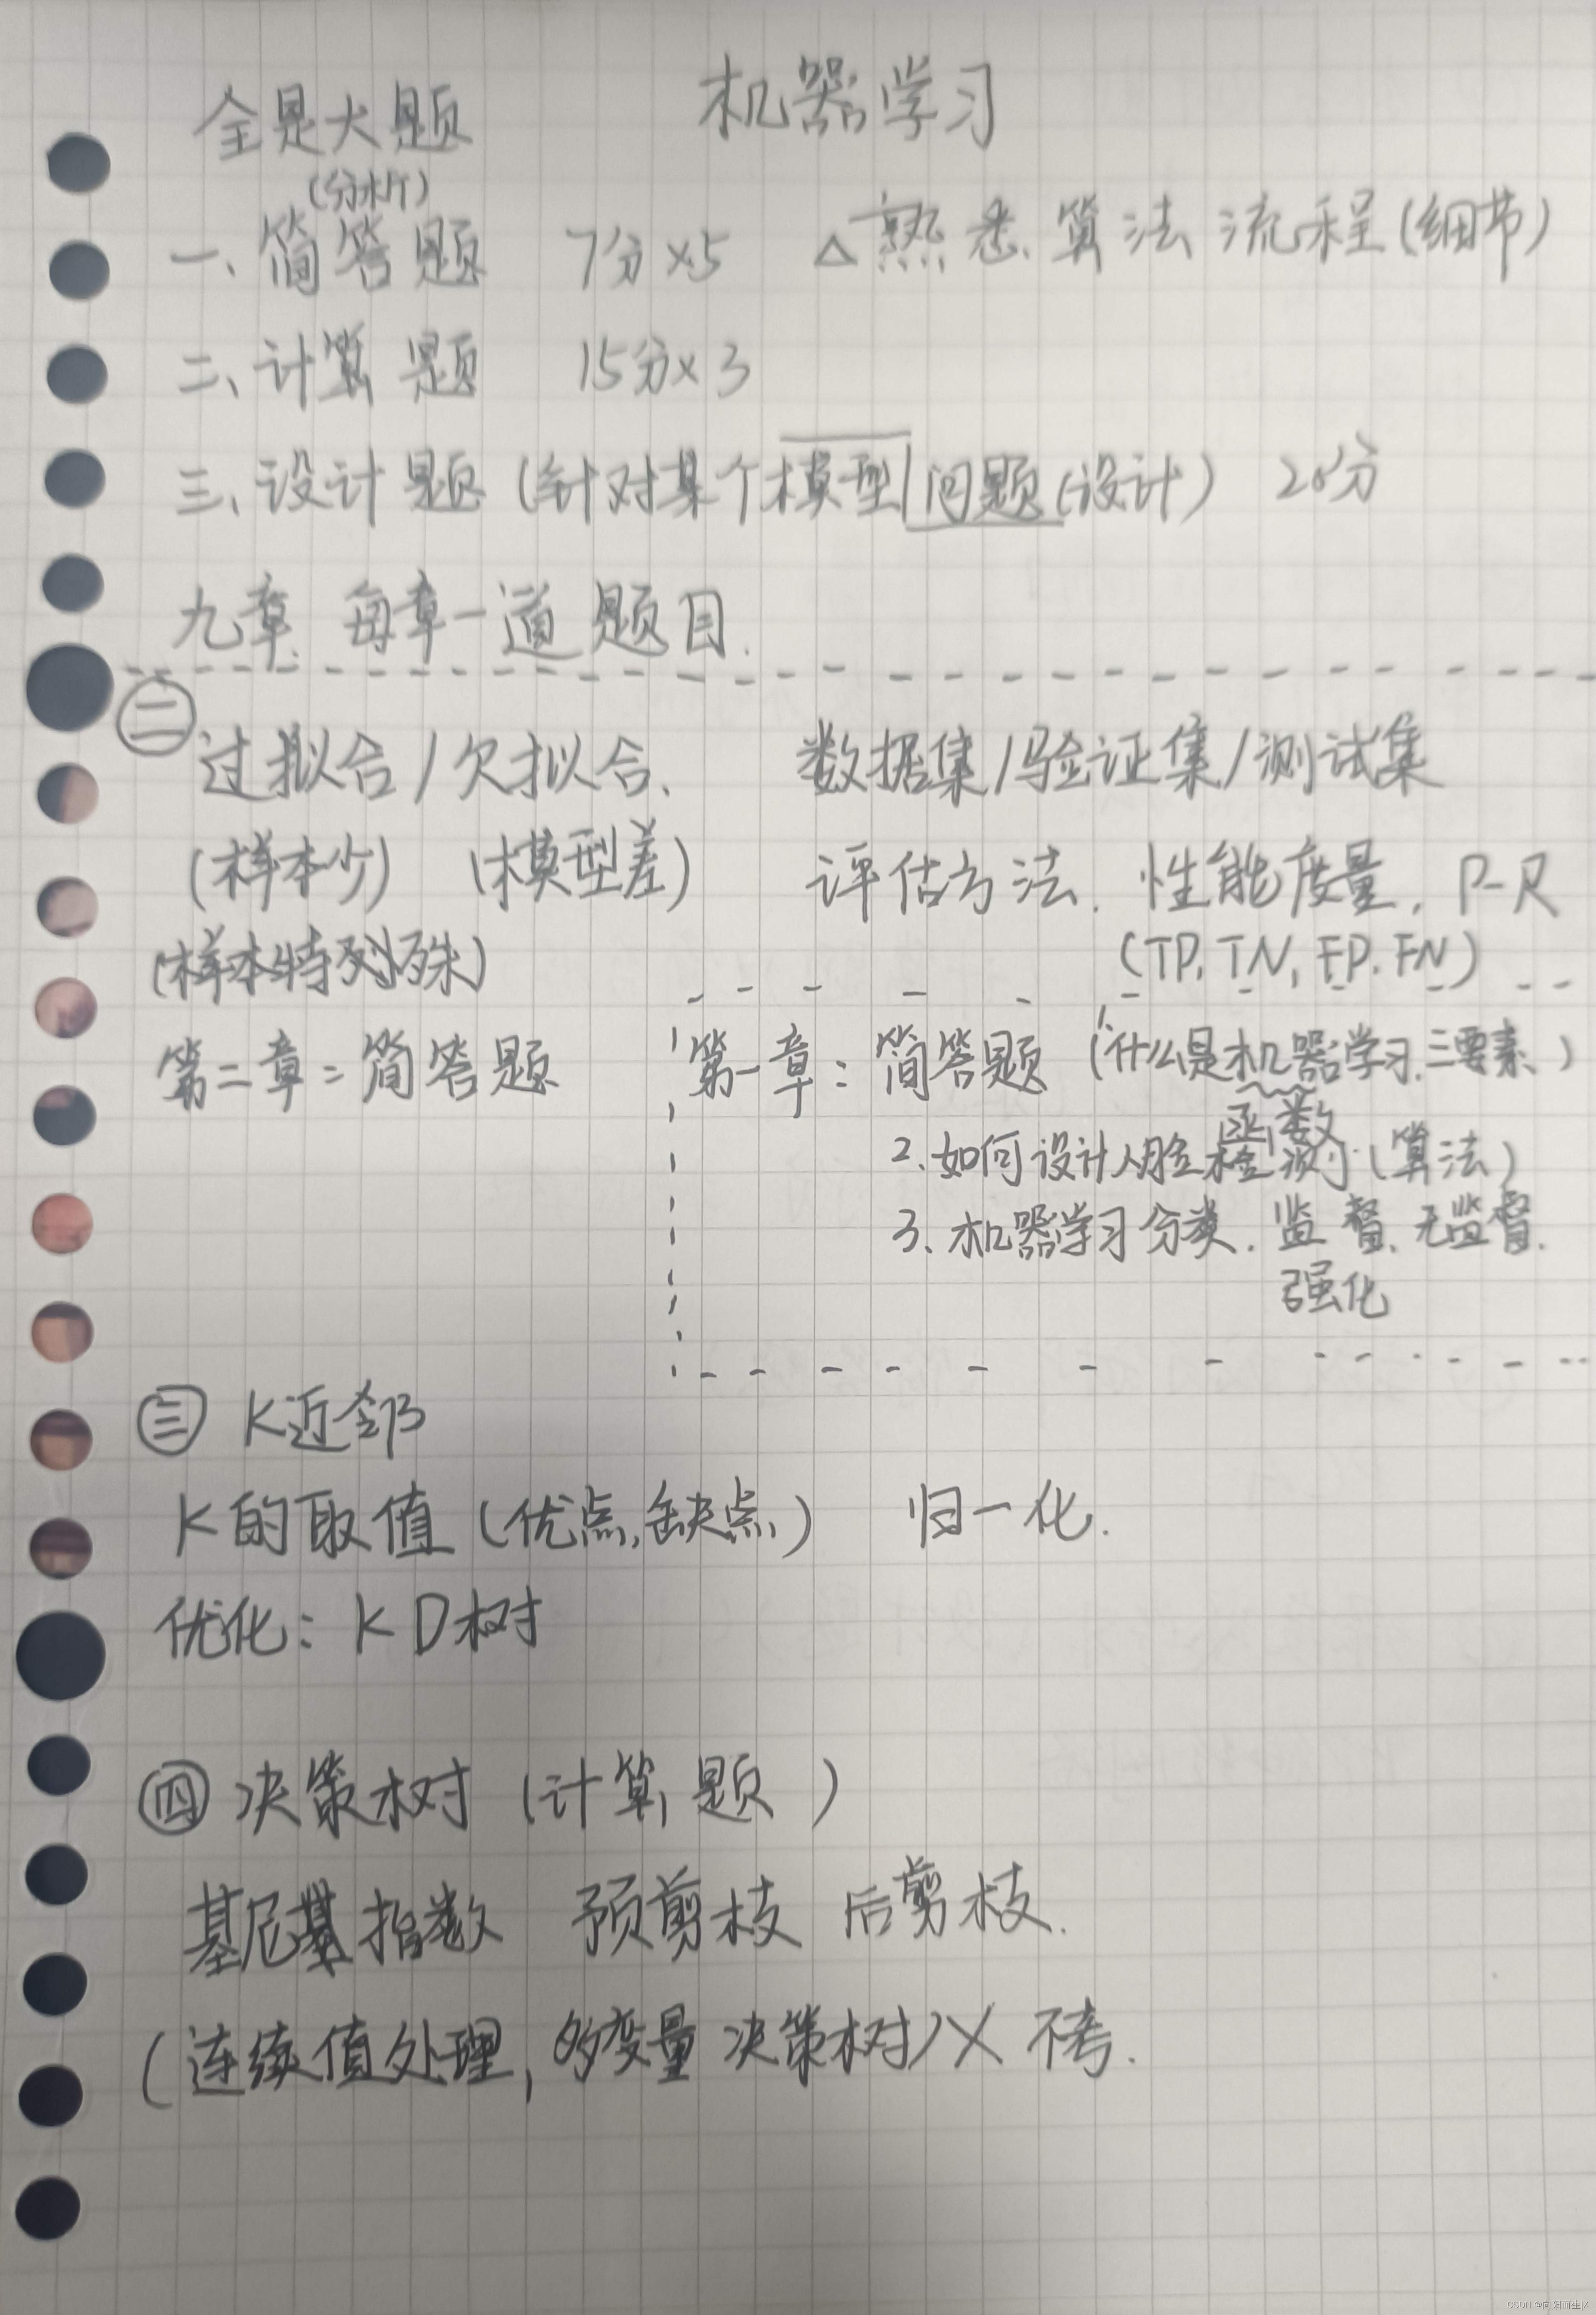 全是大题 机器学习
(分析)
一、简答题 7分×5 △熟悉算法流程(细节)
二、计算题 15分×3
三、设计题(针对某个模型/问题(设计) 20分
九章 每章一道题目.
㊁ 过拟合/欠拟合、 数据集/验证集/测试集
(样本少) (模型差) 评估方法. 性能度量, P-R
(样本特殊) (TP, TN, FP. FN)
第二章: 简答题
第一章: 简答题(什么是机器学习.三要素.)
函数
2. 如何设计人脸检测(算法)
3、机器学习分类. 监督、无监督.
强化
㊂ K近邻
K的取值(优点,缺点) 归一化.
优化: KD树
㊃ 决策树(计算题)
基尼指数 预剪枝 后剪枝.
(连续值处理, 多变量决策树)× 不考.
CSDN @向阳而生仪